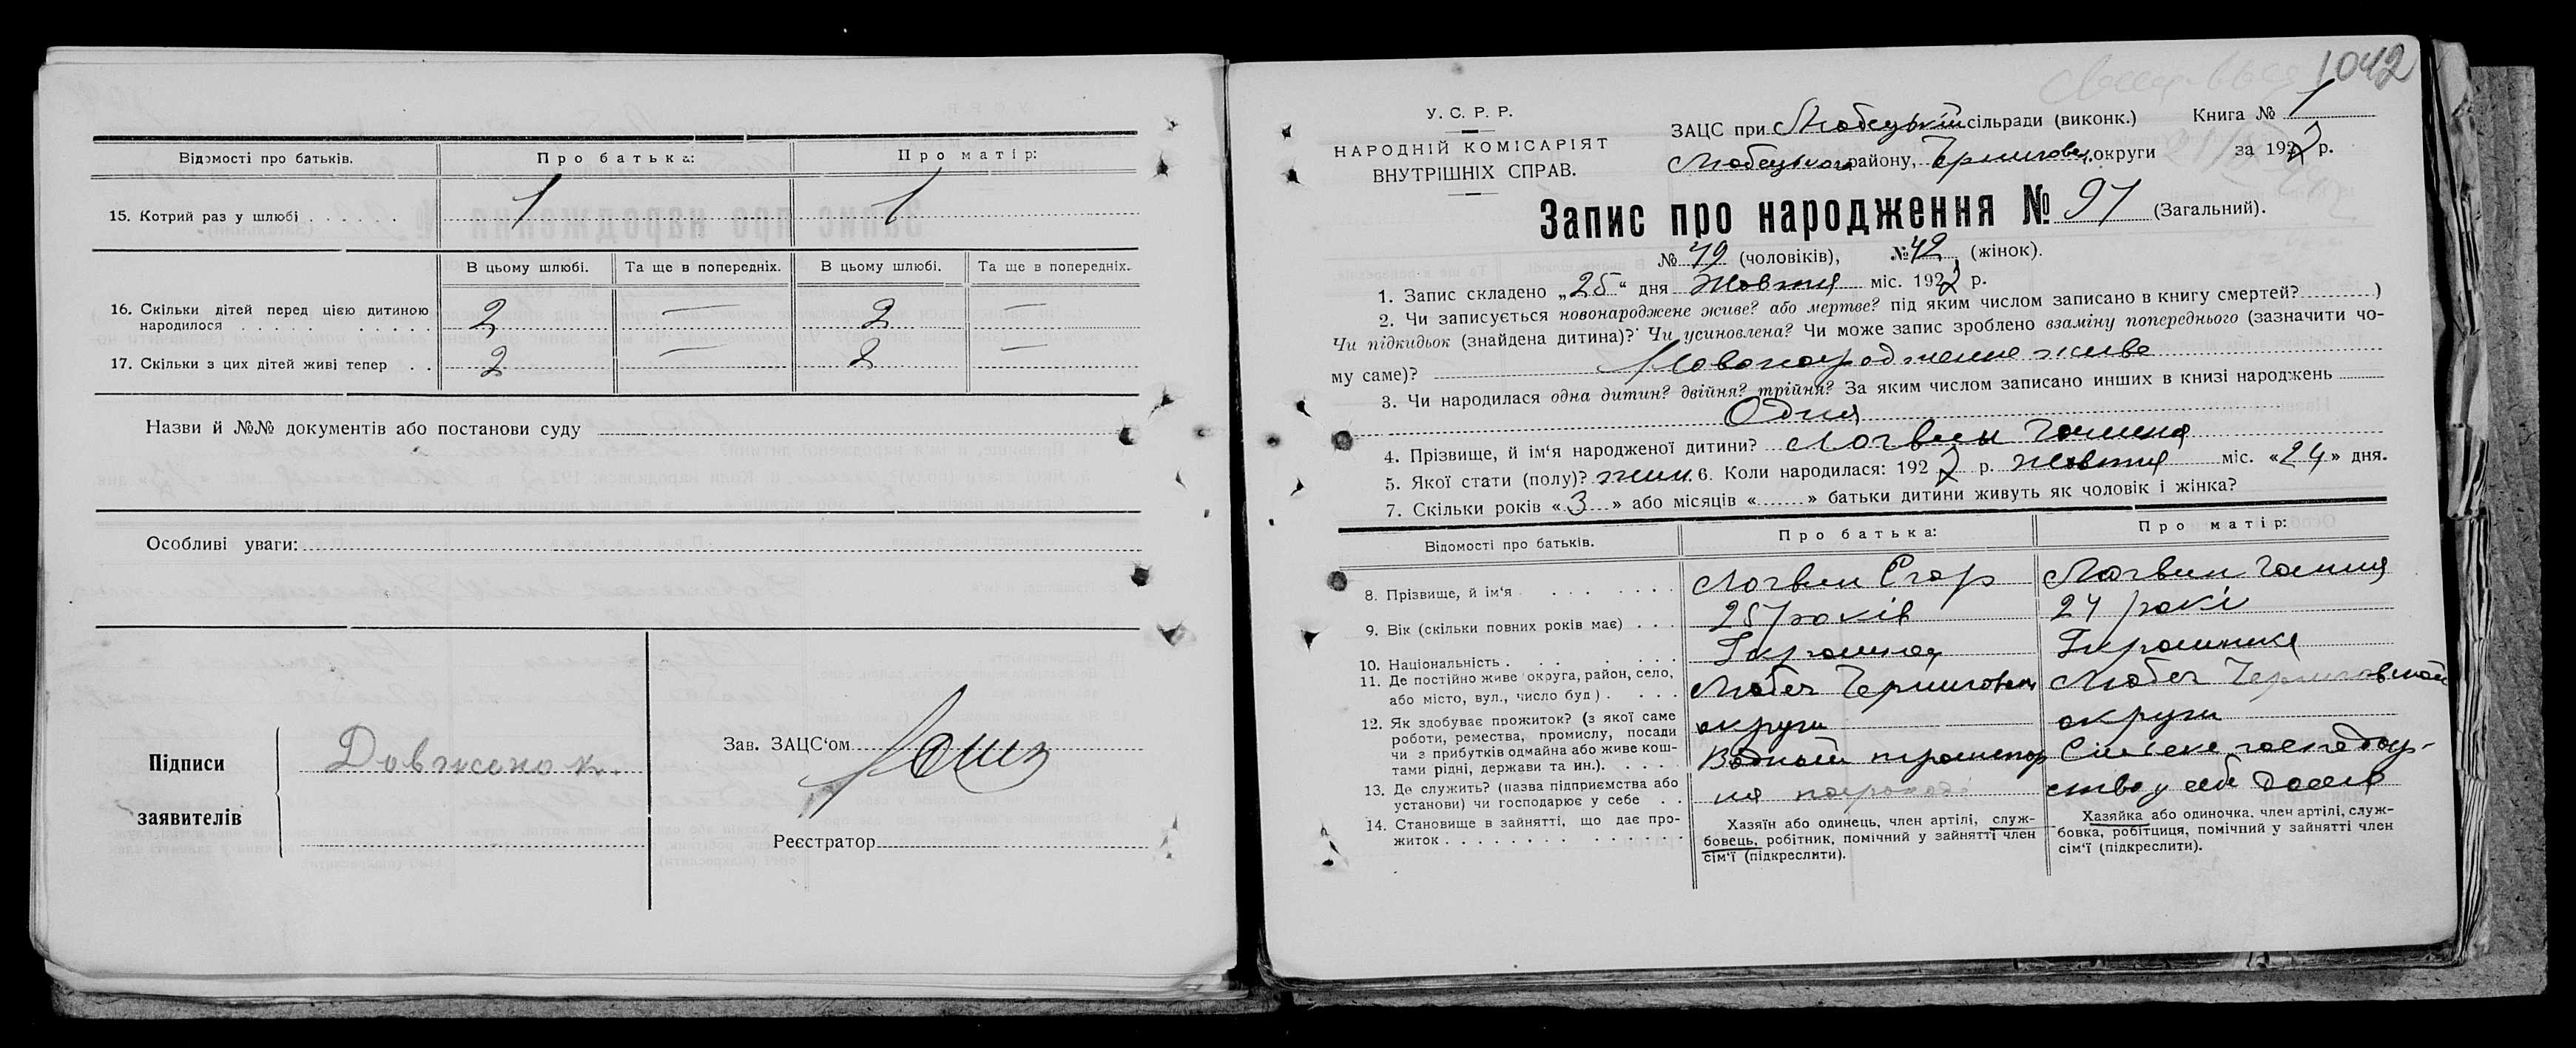 Відомості про батьків. Про батька: Про матір:
15. Котрий раз у шлюбі . . . . . . 1 1
В цьому шлюбі. Та ще в попередніх. В цьому шлюбі. Та ще в попередніх.
16. Скільки дітей перед цією дитиною
народилося . . . . . . . . . . 2 — 2 —
17. Скільки з цих дітей живі тепер . . 2 — 2 —
Назви й №№ документів або постанови суду
Особливі уваги:
Підписи
заявителів
Довженок.
Зав. ЗАЦС'ом
Реєстратор
1042
У. С. Р. Р.
НАРОДНІЙ КОМІСАРІЯТ
ВНУТРІШНІХ СПРАВ.
ЗАЦС при Любецькій сільради (виконк.) Книга № 1
Любецького району, Чернигове. округи за 192 р.
Запис про народження № 97 (Загальний).
№ 49 (чоловіків), № 42 (жінок).
1. Запис складено „25“ дня Жовтня міс. 192 р.
2. Чи записується новонароджене живе? або мертве? під яким числом записано в книгу смертей? )
Чи підкидьок (знайдена дитина)? Чи усиновлена? Чи може запис зроблено взаміну попереднього (зазначити чо-
му саме)? Новонародженне живе
3. Чи народилася одна дитин? двійня? трійня? За яким числом записано инших в книзі народжень
Одна
4. Прізвище, й ім'я народженої дитини? Логвин Галина
5. Якої стати (полу)? жін. 6. Коли народилася: 192 р. Жовтня міс. «24» дня.
7. Скільки років «3» або місяців « » батьки дитини живуть як чоловік і жінка?
Відомості про батьків. Про батька: Про матір:
8. Прізвище, й ім'я . . . . . . . Логвин Єгор Логвин Ганна
9. Вік (скільки повних років має) . . . 25 років 24 рокі
10. Національність . . . . . . .
11. Де постійно живе (округа, район, село,
або місто, вул., число буд) . . . . Любеч Любеч
12. Як здобуває прожиток? (з якої саме округи округи
роботи, ремества, промислу, посади
чи з прибутків одмайна або живе кош-
тами рідні, держави та ин.). . . . . Водный транспор Сильске господар-
13. Де служить? (назва підприємства або
установи) чи господарює у себе . . на пароході ство у себе дома
14. Становище в зайнятті, що дає про-
житок . . . . . . . . . . . . .
Хазяїн або одинець, член артілі, служ-
бовець, робітник, помічний у зайнятті член
сім'ї (підкреслити).
Хазяйка або одиночка, член артілі, служ-
бовка, робітциця, помічний у зайнятті член
сім'ї (підкреслити).